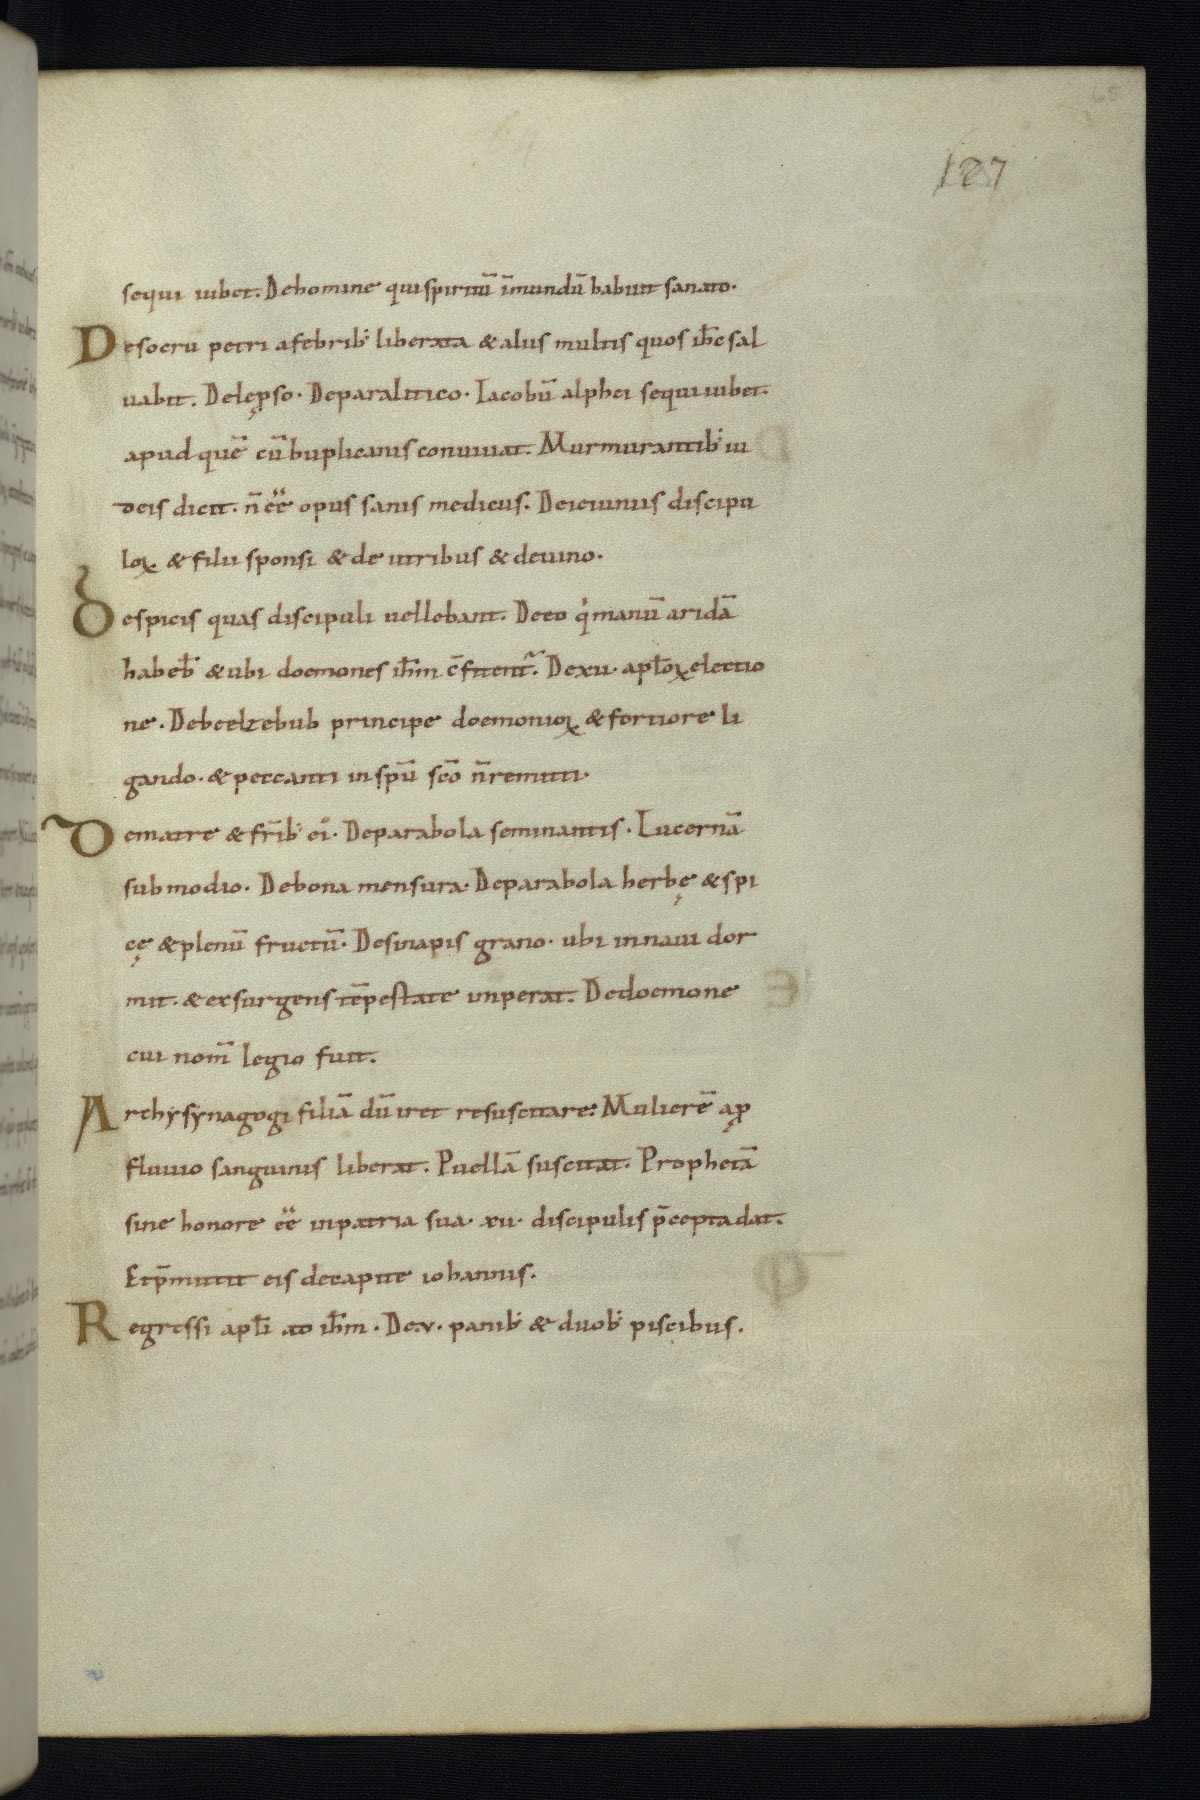 65
127
sequi iubet. De homine qui spiritū īmundū habuit sanato.
De socru petri a febrib; liberata & aliis multis quos ih̄c sal
uabit. De lępso. De paralitico. Iacobū alphei sequi iubet.
apud quē cū buplicanis conuiuat. Murmurantib; iu
deis dicit. n̄ ēē opus sanis medicus. De ieiuniis discipu
loꝝ & filii sponsi & de utribus & de uino.
De spicis quas discipuli uellebant. De eo q̇ manū aridā
habeb̄ & ubi doemones ih̄m c̄fitent̃. De xii. apl̄oꝝ electio
ne. De beelzebub principe doemonioꝝ & fortiore li
gando. & peccanti in sp̄ū sc̄o n̄ remitti.
De matre & fr̄ib; ei᾽. De parabola seminantis. Lucernā
sub modio. De bona mensura. De parabola herbę & spi
cę & plenū fructū. De sinapis grano. ubi in naui dor
mit. & exsurgens tēpestate inperat. De doemone
cui nom̄ legio fuit.
Archysynagogi filiā dū iret resuscitare. Mulierē a ꝓ
fluuio sanguinis liberat. Puellā suscitat. Prophetā
sine honore ēē in patria sua. xii. discipulis p̄cepta dat.
Et p̄mittit eis de capite iohannis.
Regressi apl̄i ad ih̄m. De .v. panib; & duob; piscibus.